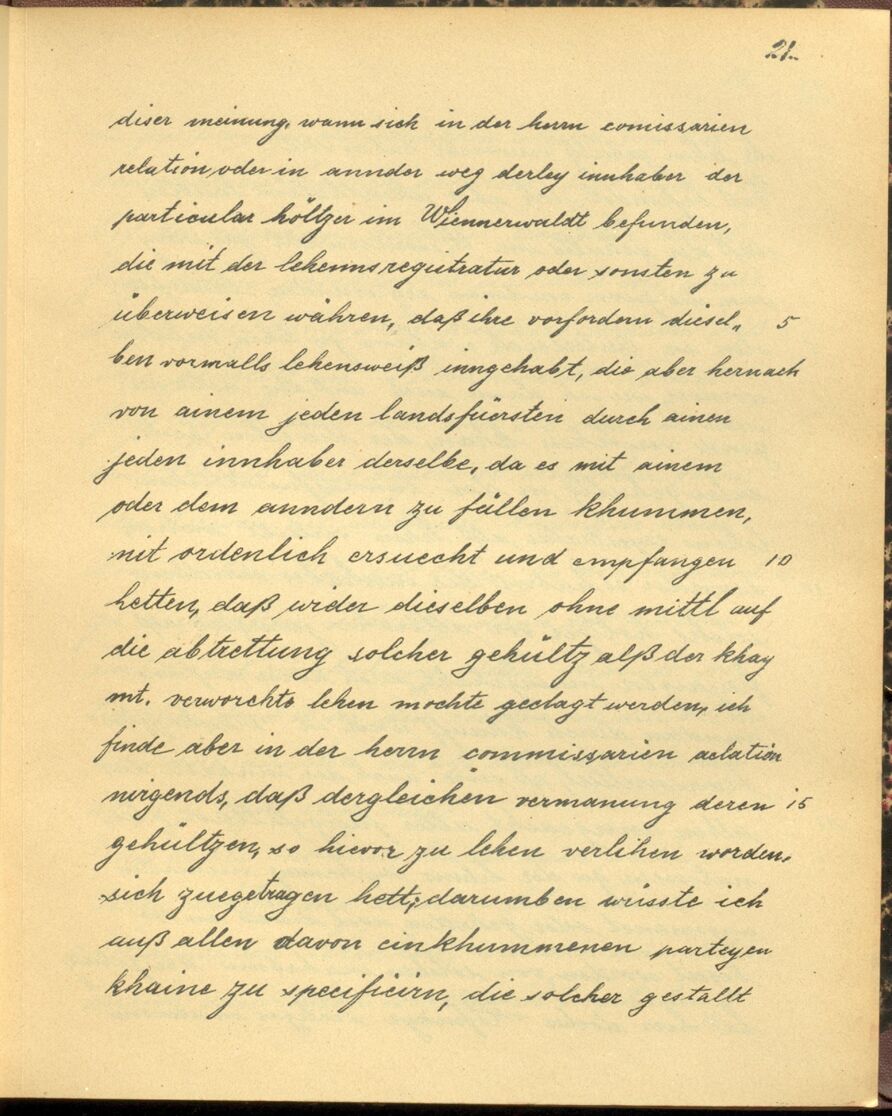 21.
diser meinung, wann sich in der herrn comissarien
relation oder in annder weg derley innhaber der
particular höltzer im Wiennerwaldt befunden,
die mit der lehennsregistratur oder sonsten zu
überweisen währen, daß ihre vorfordern diesel„ 5
ben vormalls lehensweiß inngehabt, die aber hernach
von ainem jeden landsfüersten durch ainen
jeden innhaber derselbe, da es mit ainem
oder dem anndern zu fällen khummen,
nit ordenlich ersuecht und empfangen 10
hetten, daß wider dieselben ohne mittl auf
die abtrettung solcher gehültz alß der khay
mt. verworchte lehen mochte geclagt werden, ich
finde aber in der herrn commissarien relation
nirgends, daß dergleichen vermanung deren 15
gehültzen, so hievor zu lehen verlihen worden,
sich zuegetragen hett; darumben wüsste ich
auß allen davon einkhummenen parteyen
khaine zu specificirn, die solcher gestallt